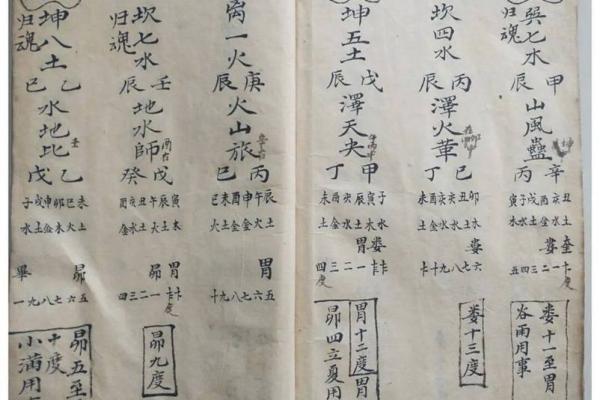 吳七木
归魂
甲辰
山風蠱
辛丙
丑亥酉戌子寅
土水金土水木
奎婁
一二三四五
婁十一至胃
谷雨用事
坎四水
丙辰
澤火革
己丁
卯丑亥亥酉未
木土水水金土
婁
六七八九十卡
婁十三度
坤五土
戊辰
澤天夬
甲丁
子寅辰亥酉未
水木土水金土
婁胃
卡卡一二三四度
胃十二度胃
昴四立夏用
离一火
庚辰
火山旅
丙己
辰午申酉未巳
土火金金土火
胃
五六七八九十
坎七水
归魂
壬辰
地水師
戊癸
寅辰午丑亥酉
木土火土水金
胃昴
卡卡度一二三四
昴九度
坤八土
归魂
乙巳
水地比
乙戊
未巳卯申戌子
土火木金土水
昴畢
五六七八九一
昴五至
中度
小満用